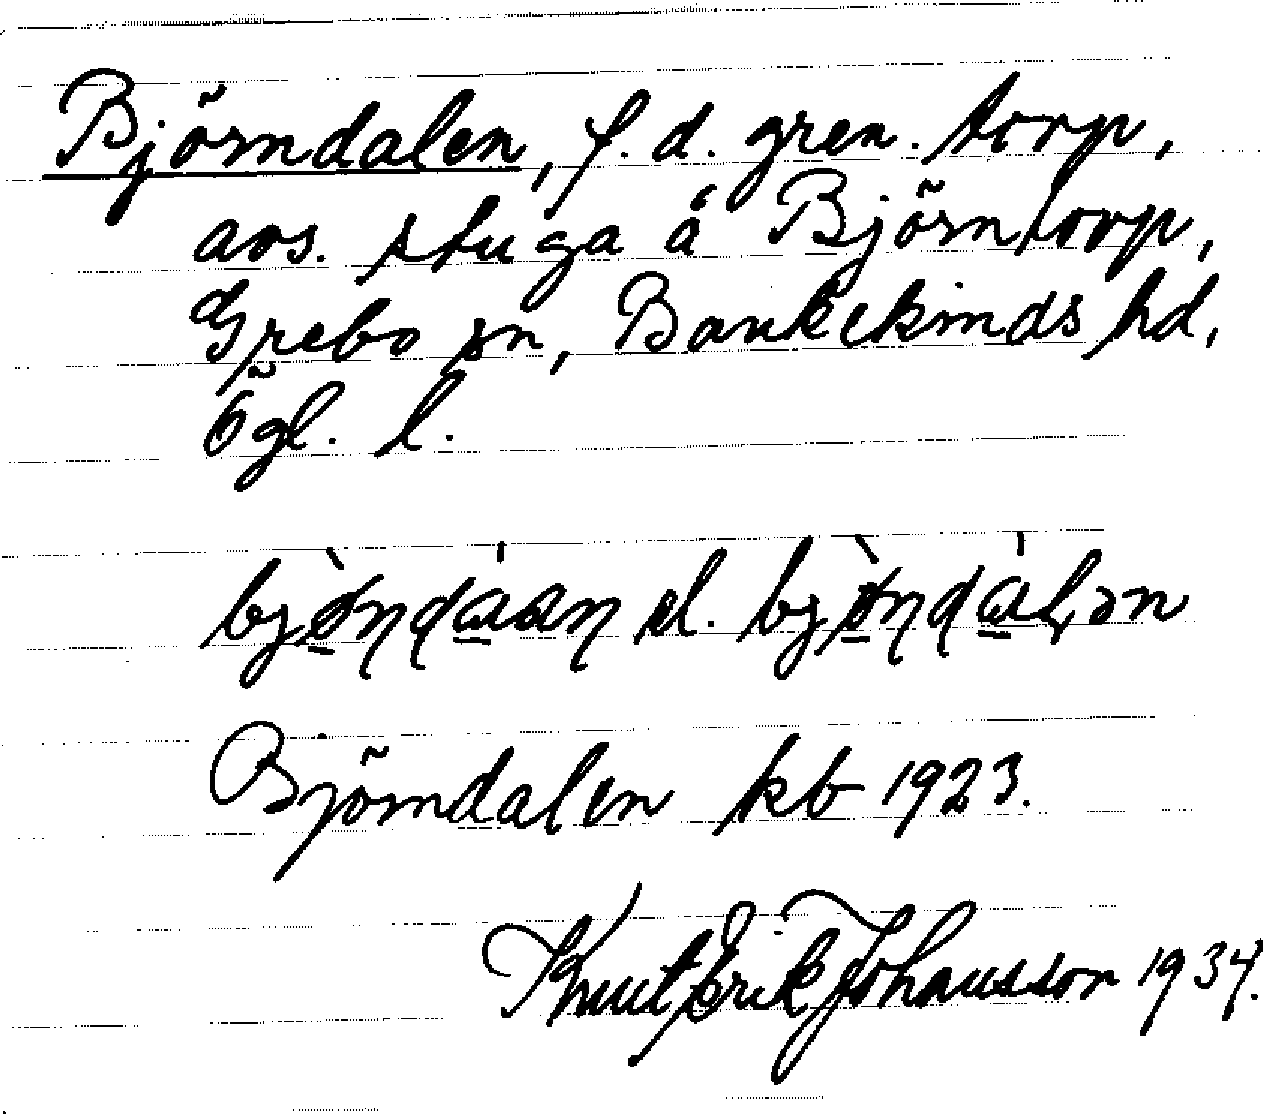 Björndalen, f. d. gren. torp,
avs. stuga å Björntorp,
Grebo sn, Bankekinds hd,
Ögl. l.
el.
Björndalen kb 1923.
Knut Erik Johansson 1934.